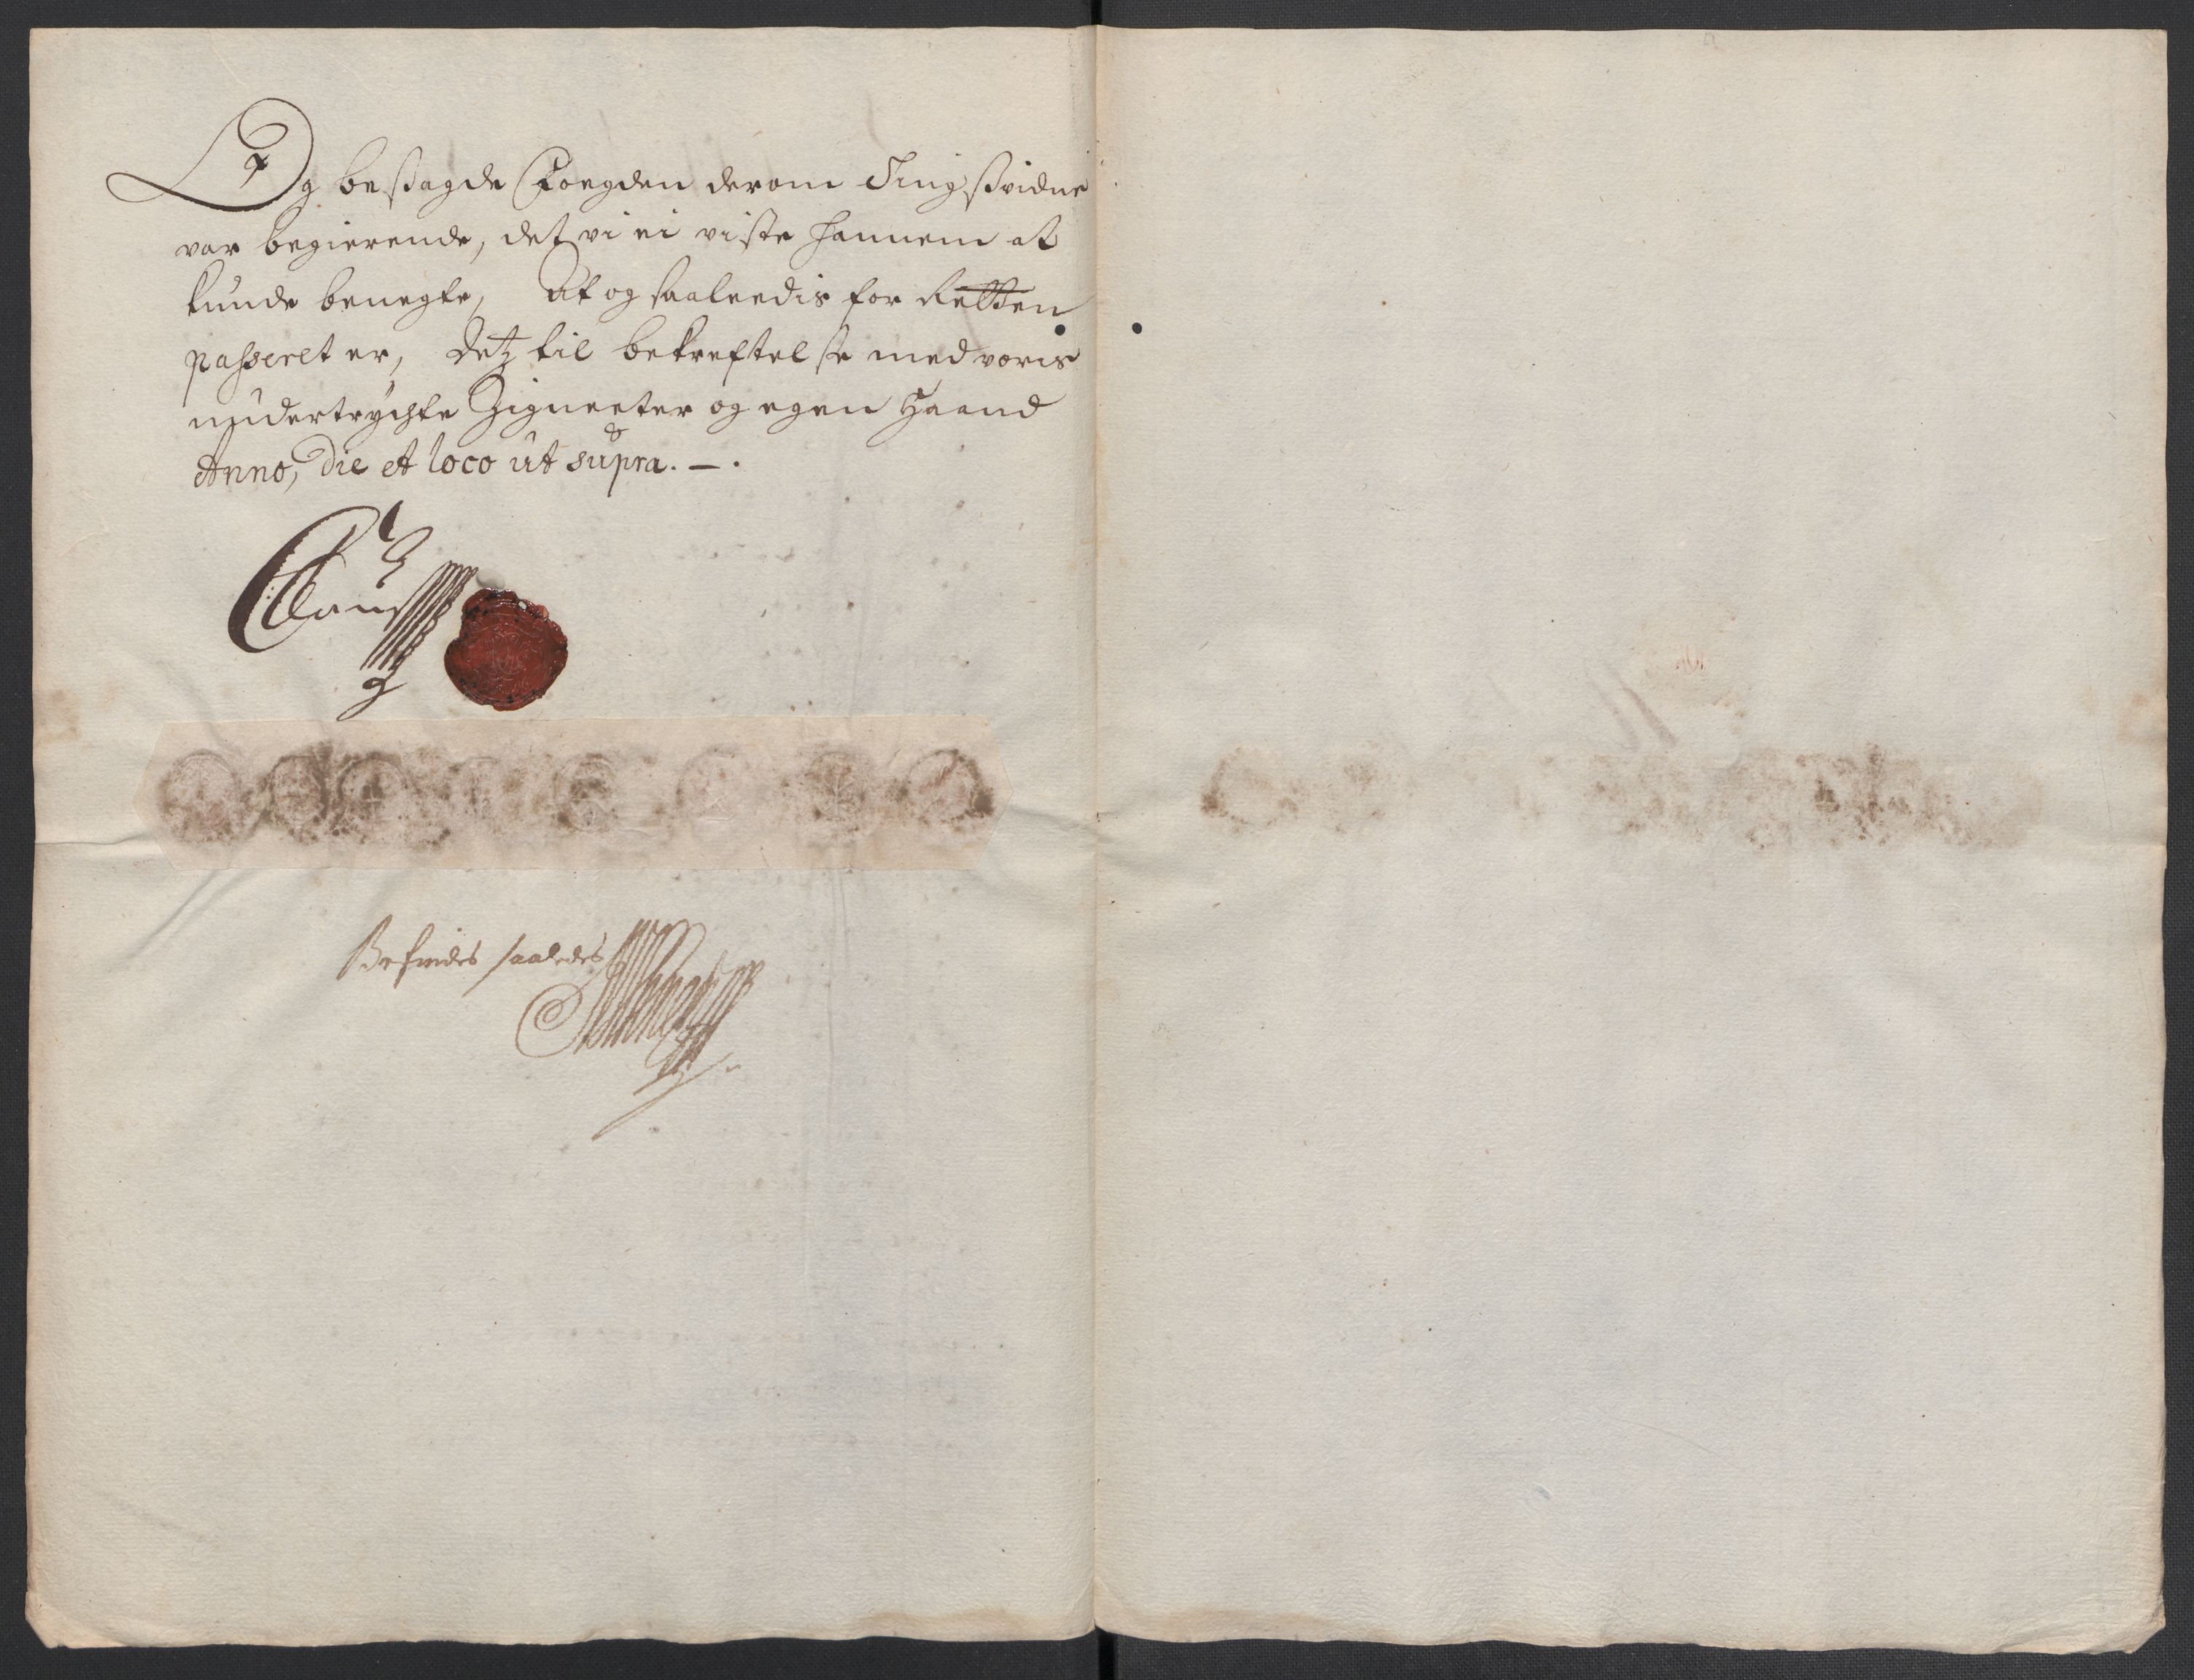 Og beßagde Foegden derom Tingßvidne
var begierende, det vi ei viste hannem at
kunde benegte, At og saaleedis for Retten
passeret er, Detz til bekreftelse med voris
undertrychte Zigneeter og egen Haand
Anno, Die et loco ut supra. — .
Befindes saaledes